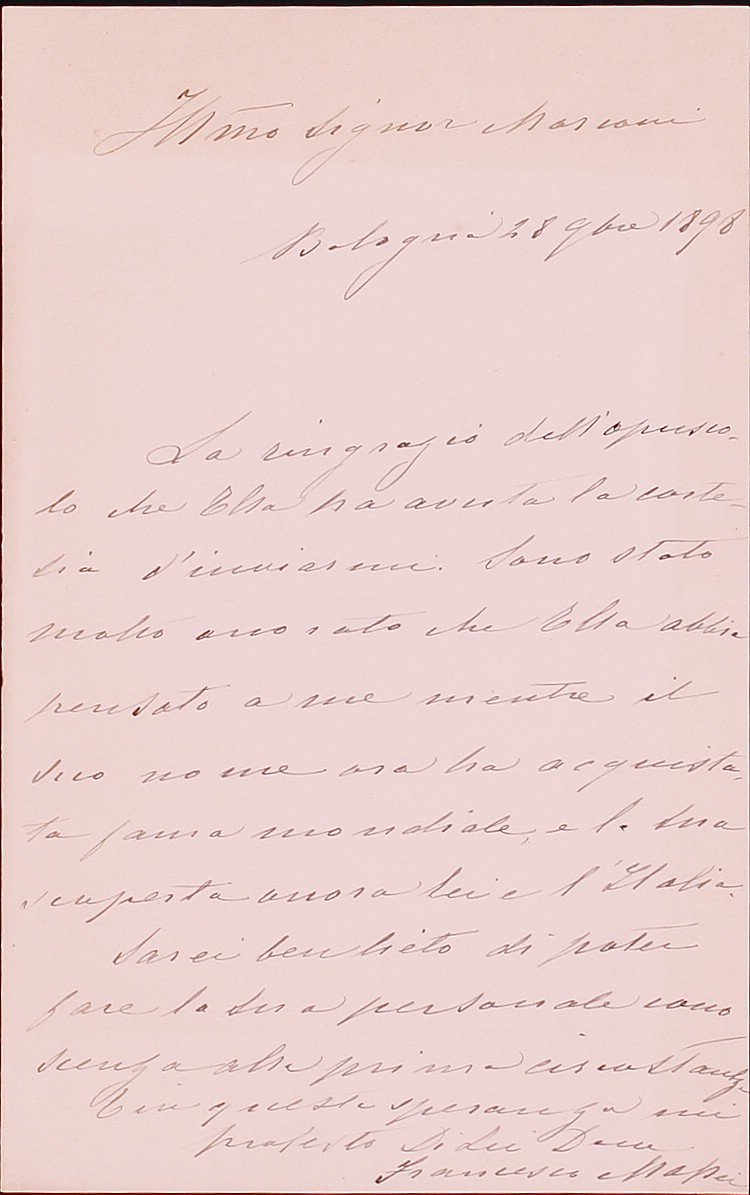 Ill.mo Signor Marconi
Bologna 28 9bre 1898
La ringrazio dell'opusco-
lo che Ella ha avuta la corte-
sia d'inviarmi. Sono stato
molto onorato che Ella abbia
pensato a me mentre il
suo nome ora ha acquista-
ta fama mondiale, e la sua
scoperta onora lei e l'Italia.
Sarei ben lieto di poter
fare la sua personale cono
scenza alla prima circostanza
E in questa speranza mi
protesto Di Lei Devo
Francesco